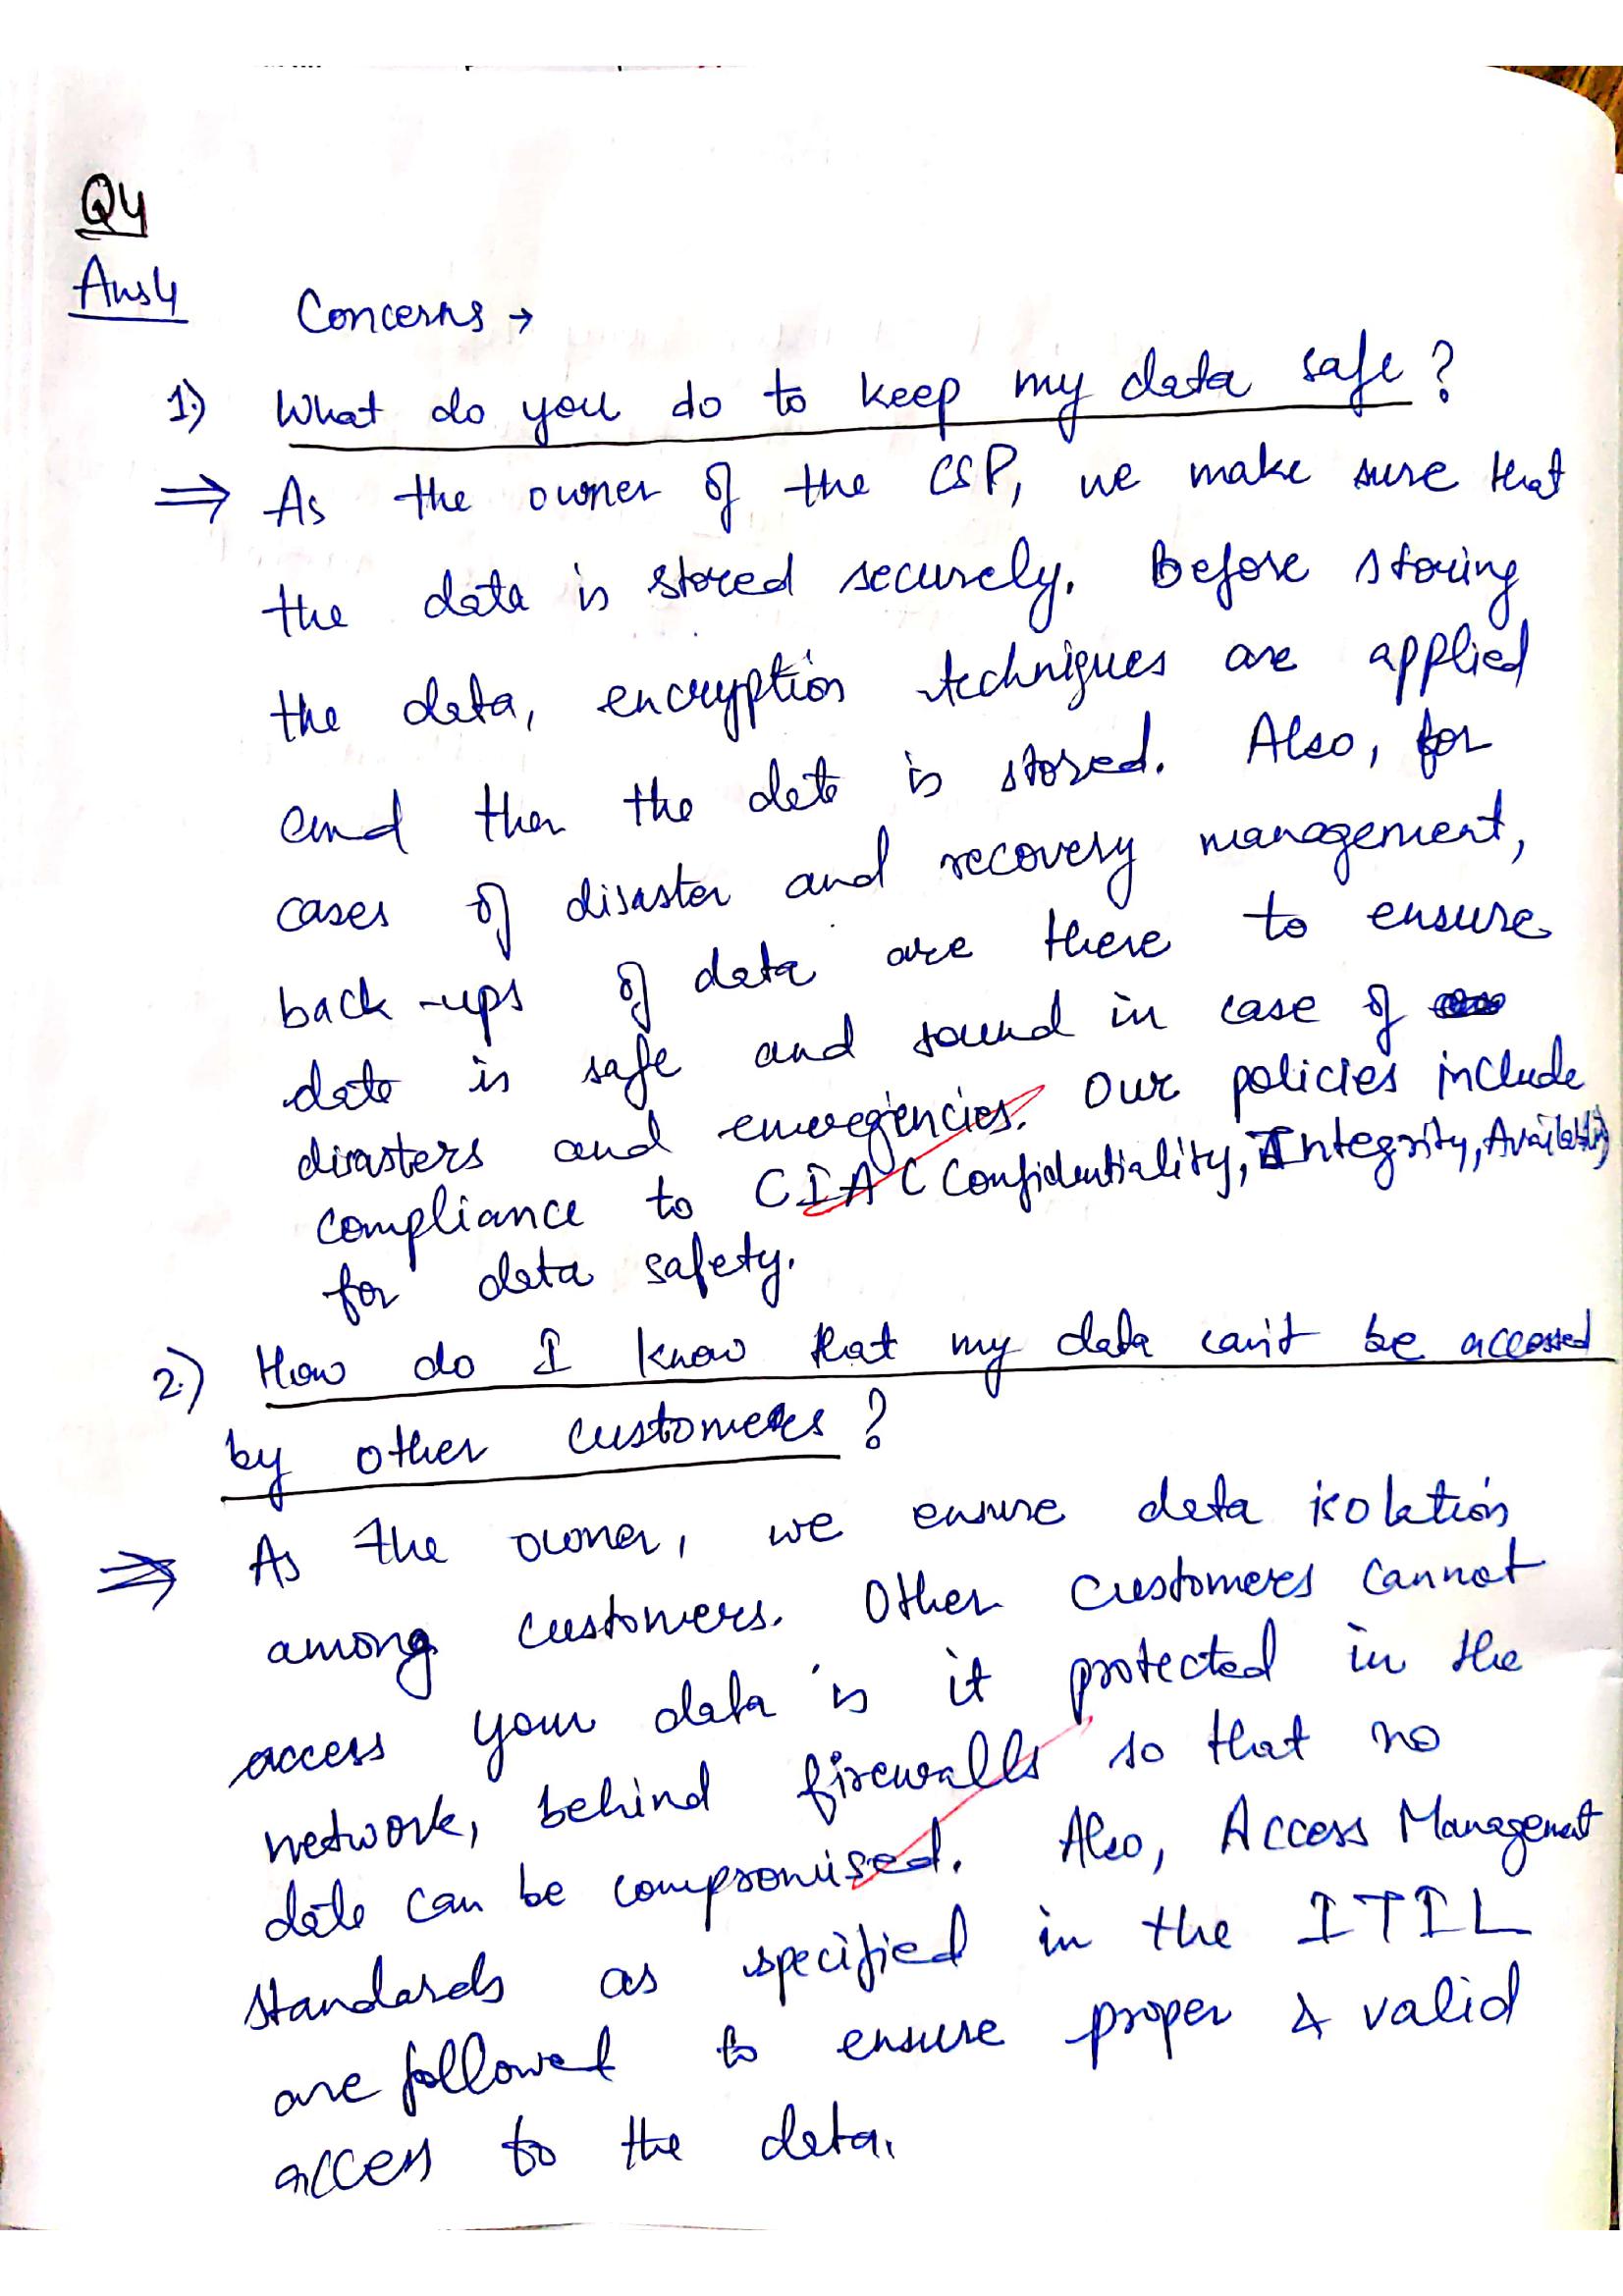 Q4
Ans4 Concerns →
1.) What do you do to keep my data safe?
⇒ As the owner of the CSP, we make sure that
the data is stored securely. Before storing
the data, encryption techniques are applied
and then the data is stored. Also, for
cases of disaster and recovery management,
back-ups of data are there to ensure
data is safe and sound in case of
disasters and emergencies. Our policies include
compliance to CIA ( Confidentiality, Integrity, Availability)
for data safety.
2.) How do I know that my data can't be accessed
by other customers?
⇒ As the owner, we ensure data isolation
among customers. Other customers cannot
access your data is it protected in the
network, behind firewalls so that no
data can be compromised. Also, Access Management
standards as specified in the ITIL
are followed to ensure proper & valid
access to the data.